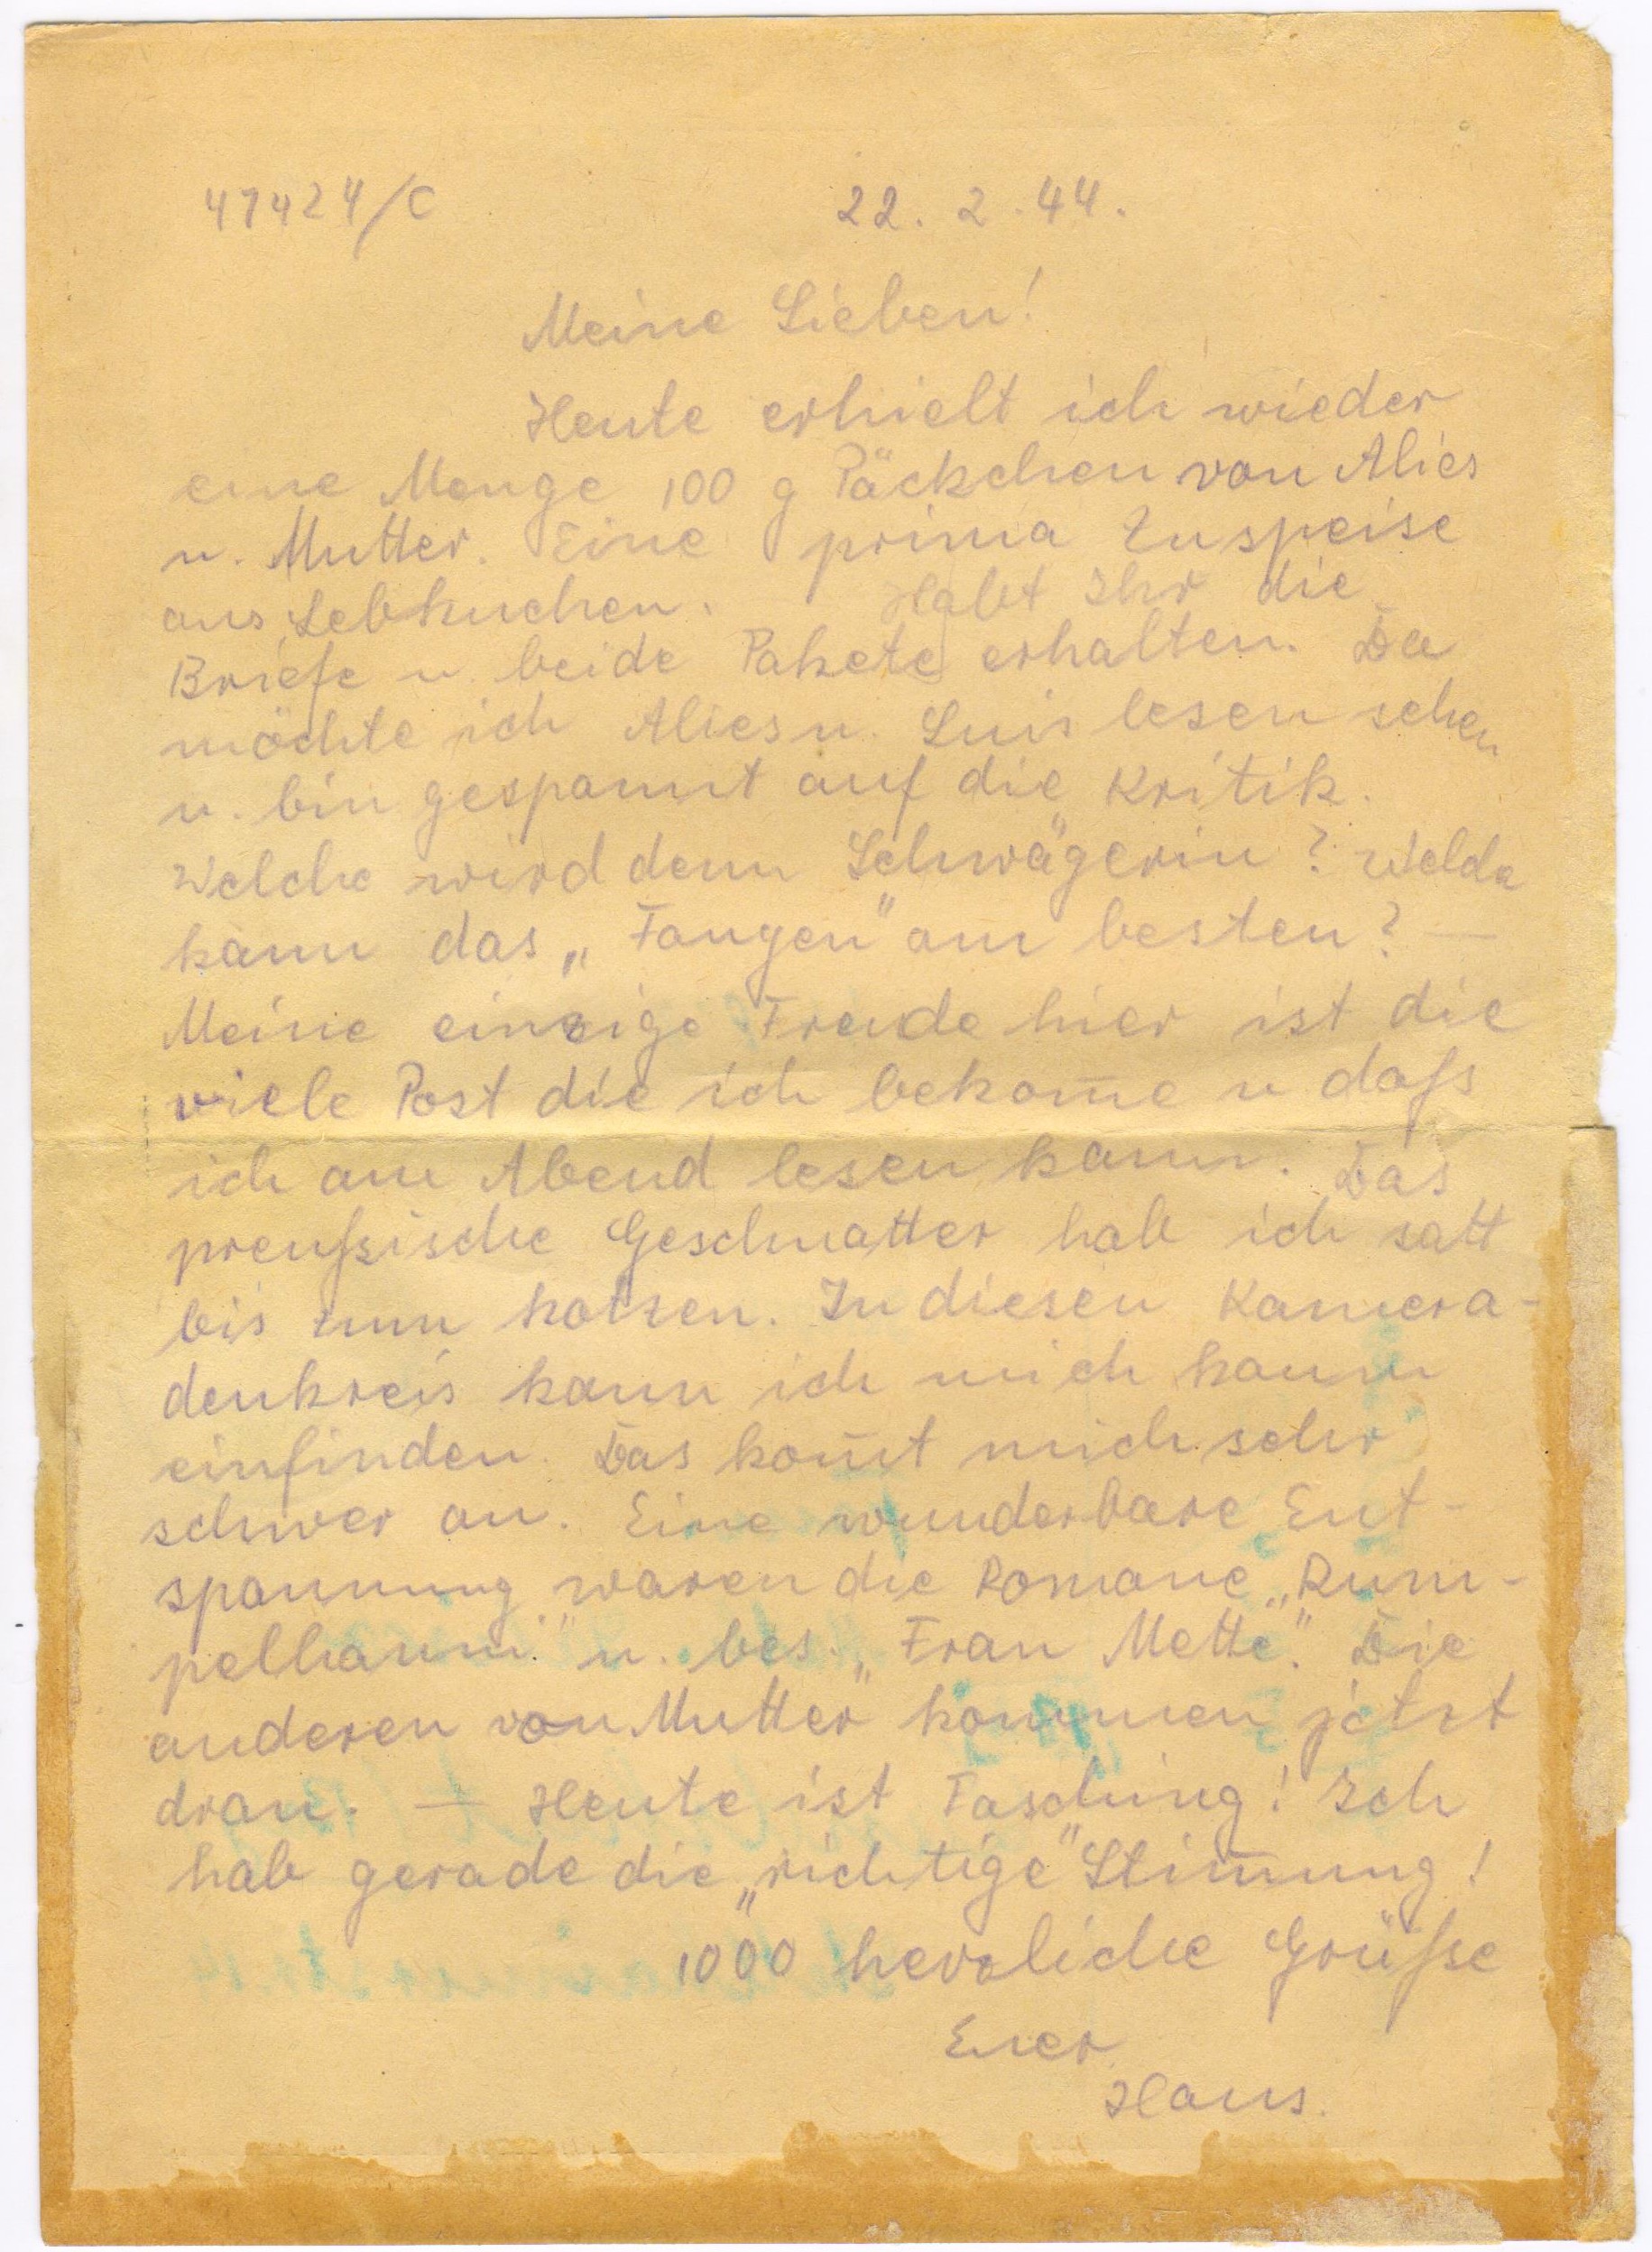 47424/C 22. 2. 44.
Meine Lieben!
Heute erhielt ich wieder
eine Menge 100 g Päckchen von Alies
u. Mutter. Eine prima Zuspeise
aus Lebkuchen. Habt Ihr die
Briefe u. beide Pakete erhalten. Da
möchte ich Alies u. Luis lesen sehen
u. bin gespannt auf die Kritik.
Welche wird denn Schwägerin? Welche
kann das „Fangen" am besten? —
Meine einzige Freude hier ist die
viele Post die ich bekom̄e u daſs
ich am Abend lesen kann. Das
preuſsische Geschnatter hab ich satt
bis zum kotzen. In diesen Kamera-
denkreis kann ich mich kaum
einfinden. Das kom̄t mich sehr
schwer an. Eine wunderbare Ent-
spannung waren die Romane „Rum-
pelhanni" u. bes. „Frau Mette". Die
anderen von Mutter kommen jetzt
dran. — Heute ist Fasching! Ich
hab gerade die „richtige" Stim̄ung!
1000 herzliche Grüſse
Euer
Hans.